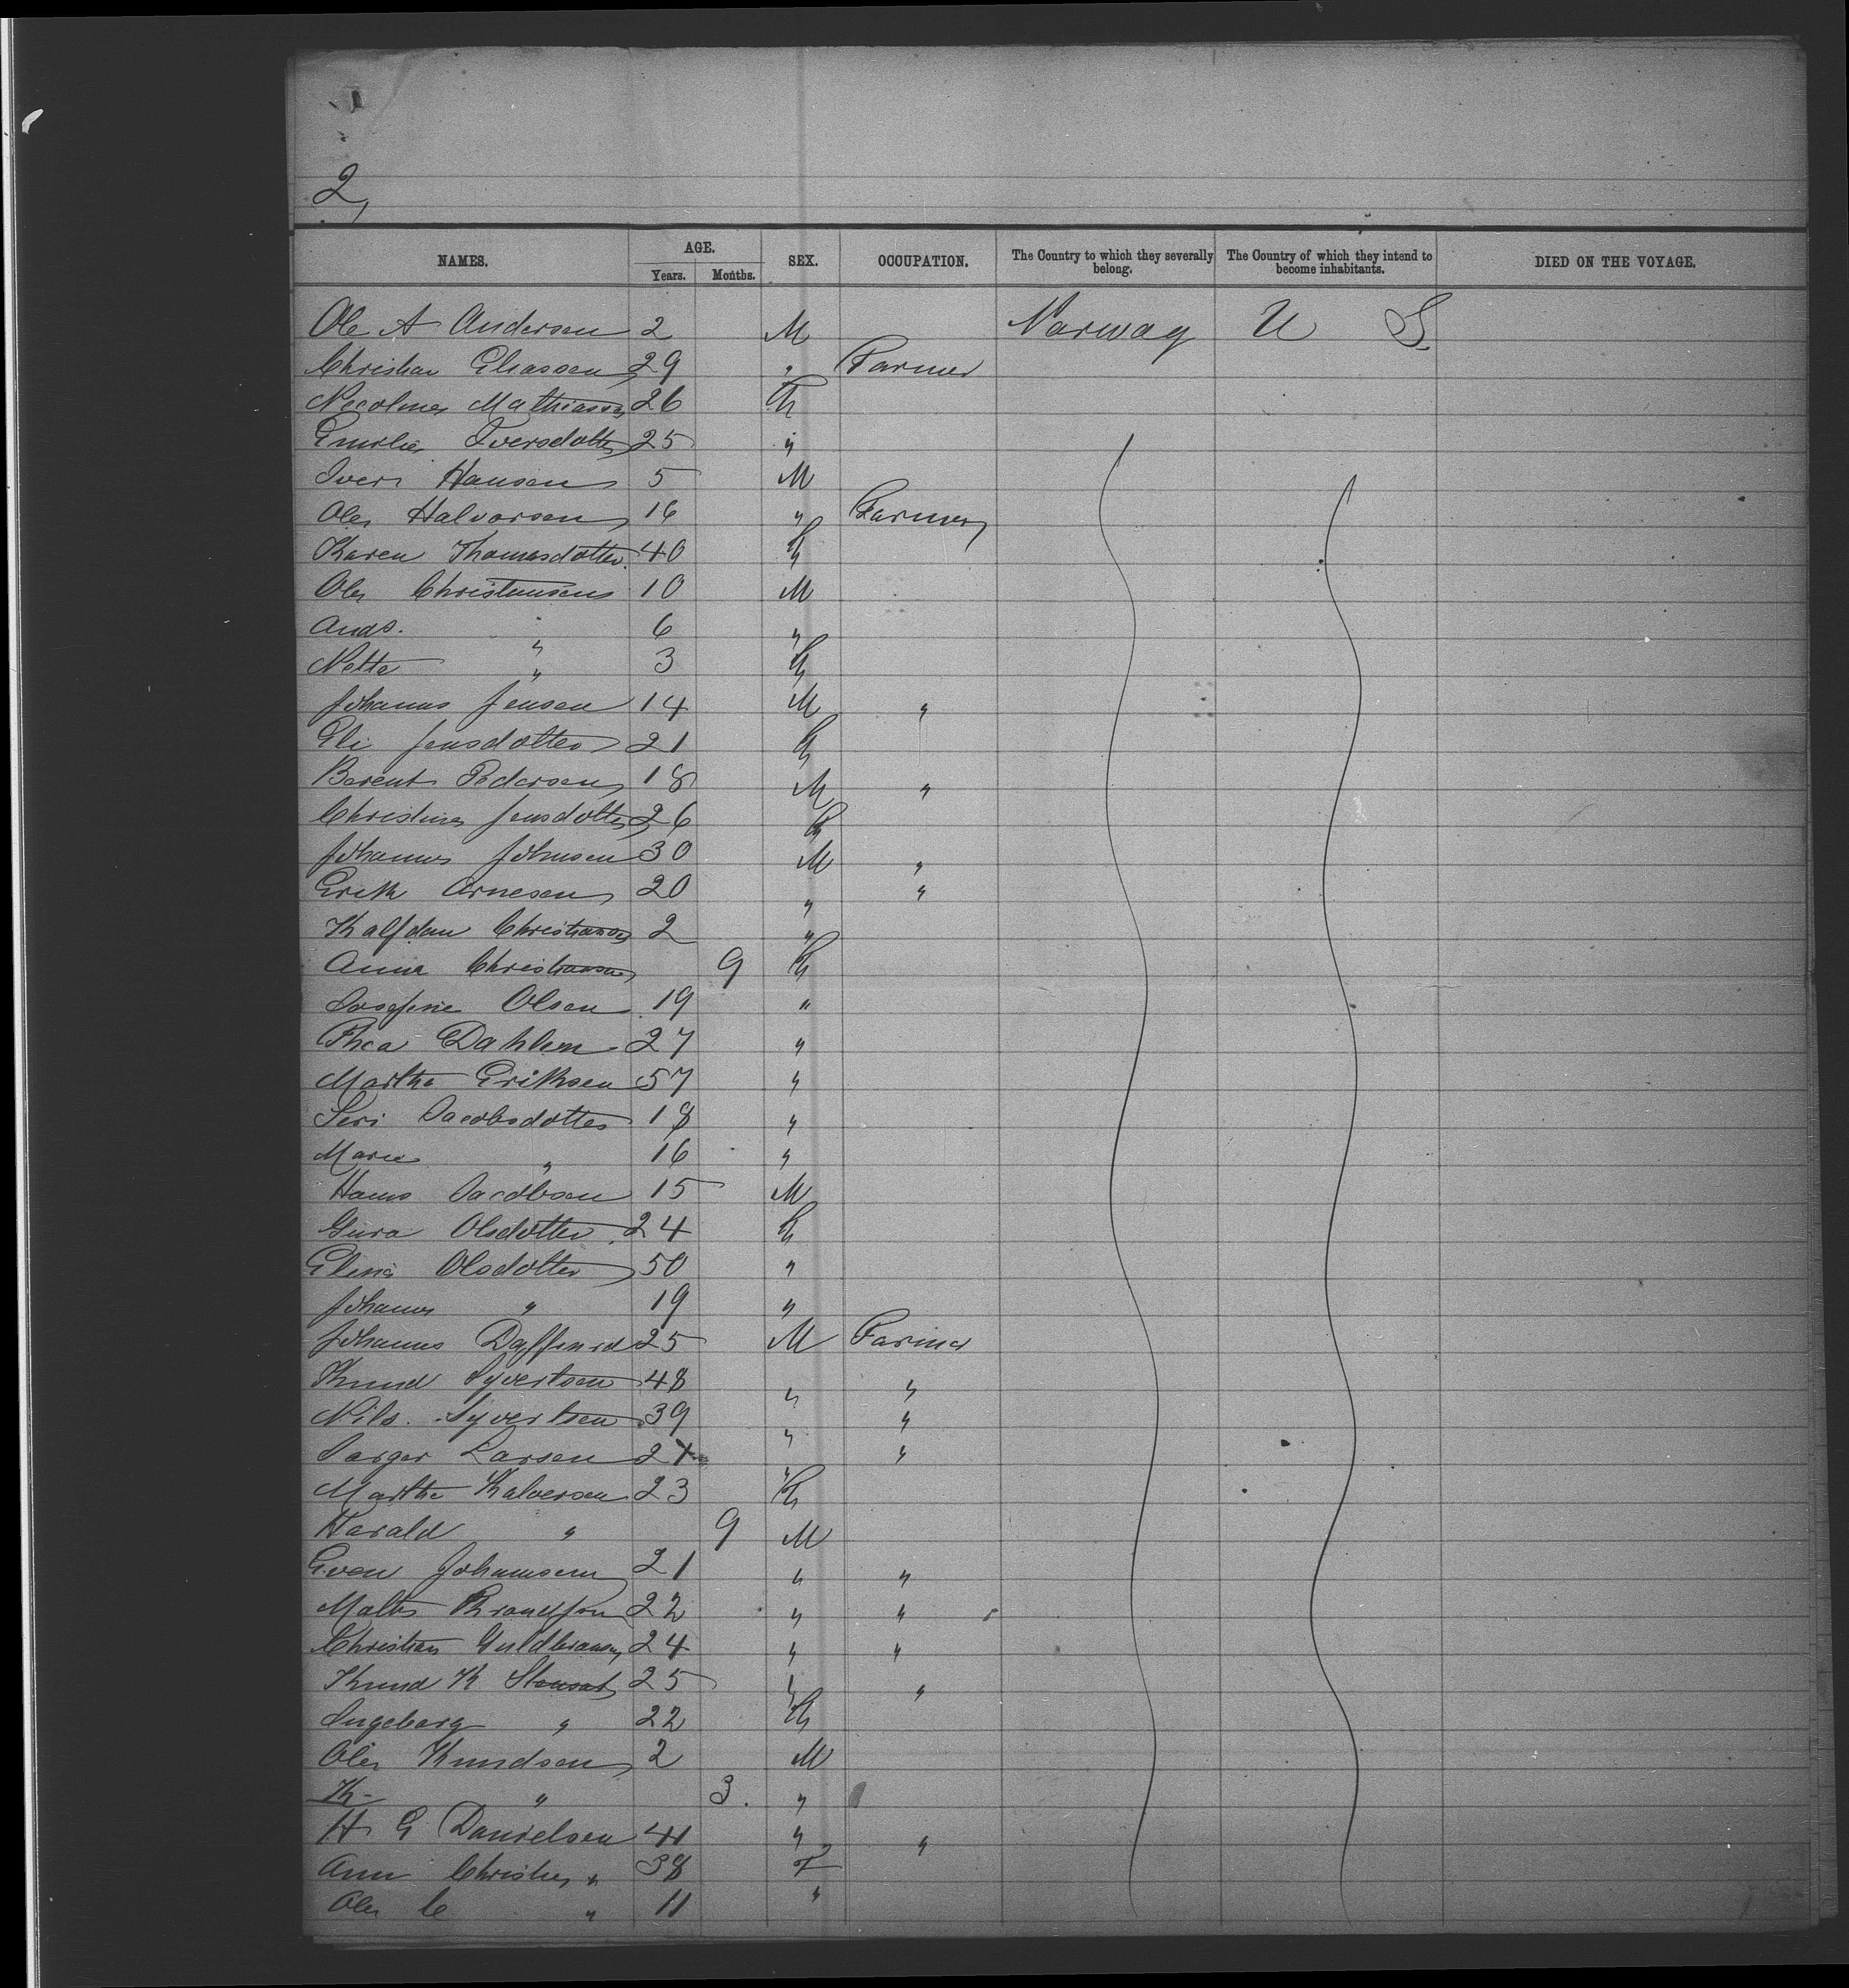 2,
NAMES. AGE. SEX. OCCUPATION. The Country to which they severally belong. The Country of which they intend to become inhabitants. DIED ON THE VOYAGE.
Years. Months.
Ole A Andersen 2 M Norway U S
Christian Eliassen 29 " Farmer
Nicoline Mathiassen 26 F
Emilie Iversdotter 25 "
Iver Hansen 5 M
Ole Halvorsen 16 " Farmer
Karen Thomasdotter 40 F
Ole Christiansen 10 M
Ands. " 6 "
Nette " 3 F
Johannes Jensen 14 M "
Eli Jensdotter 21 F
Berent Pedersen 18 M "
Christine Jensdotter 26 F
Johannes Johnsen 30 M "
Erik Arnesen 20 " "
Halfdan Christiansen 2 "
Anna Christiansen 9 F
Josefine Olsen 19 "
Thea 27 "
Martha Eriksen 57 "
Siri Jacobsdotter 18 "
Marie " 16 "
Hans Jacobsen 15 M
Olsdotter 24 F
Olsdotter 50 "
Johanne " 19 "
Johannes 25 M Farmer
Knud Syvertsen 48 " "
Nils. Syvertsen 39 " "
Larsen " "
Martha Halversen 23 F
Harald " 9 M
Even Johannsen 21 " "
22 " "
Christian Guldbransen 24 " "
Knud K 25 " "
Ingeborg " 22 F
Ole Knudsen 2 M
K- " 3. "
H G Danielsen 41 " "
Ann Christine " 38 F
Ole C " 11 "